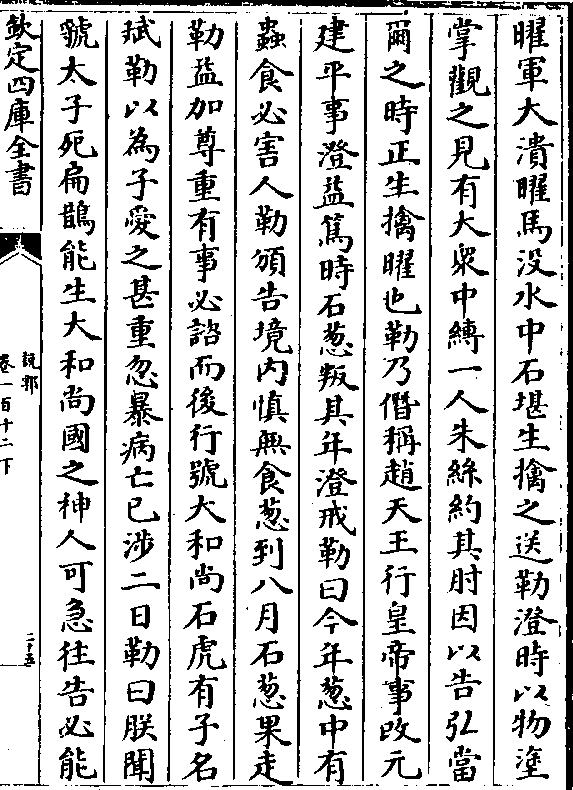 曜軍大潰曜馬没水中石堪生擒之送勒澄時以物塗
掌觀之見有大衆中縛一人朱絲約其肘因以告弘當
爾之時正生擒曜也勒乃僭稱趙天王行皇帝事改元
建平事澄益篤時石葱叛其年澄戒勒曰今年葱中有
蟲食必害人勒頒告境内慎無食葱到八月石葱果走
勒益加尊重有事必諮而後行號大和尚石虎有子名
斌勒以為子愛之甚重忽暴病亡已涉二日勒曰朕聞
虢太子死扁鵲能生大和尚國之神人可急往告必能
欽定四庫全書
說郛
卷一百十二下
二十五